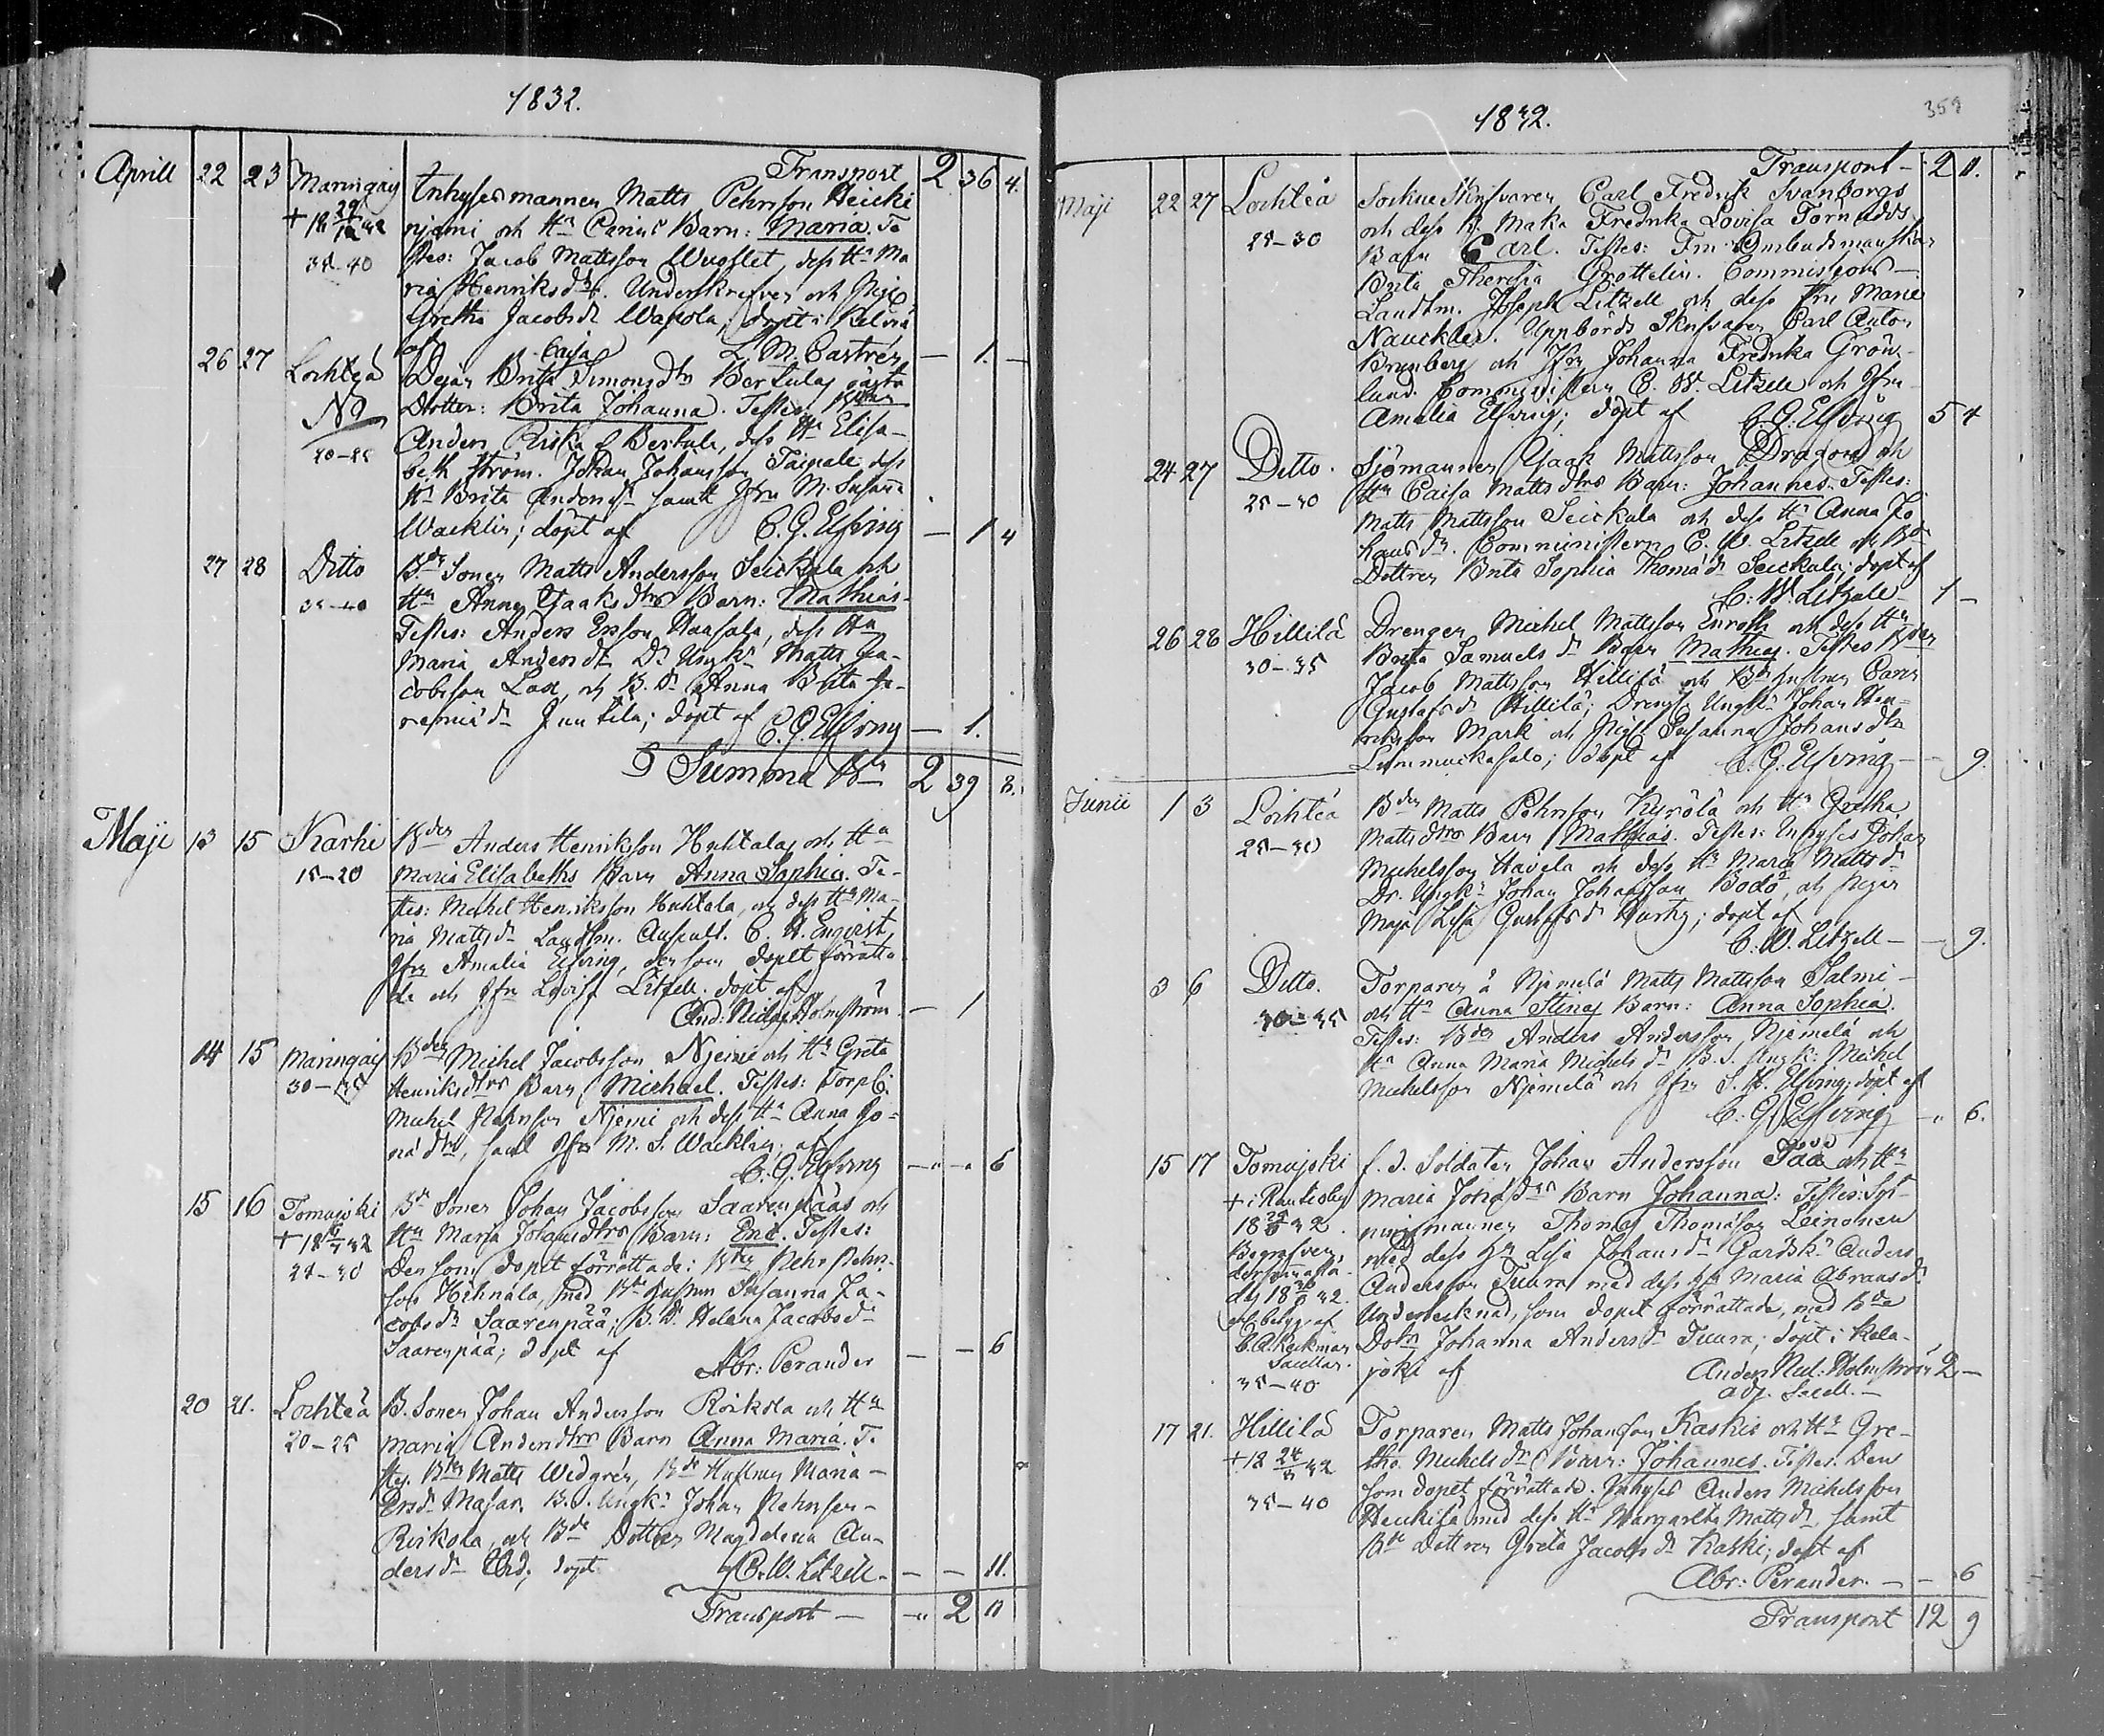 1832.
Transport 2 36 4.
Aprill 22 23 Maringais Inhysesmannen Matts Pehrsson Heicki
+ 18 29/12 32 njemi och Hu Carins Barn: Maria. Te
35-40 stes: Jacob Mattsson dess Hu Ma
ria Henriksdr. Underskrefven och Pig.
Gretha Jacobsdr Wapola, döpt i Kelviå
af L. M. Castrén — 1. —
Caisa
26 27 Lochteå Pigan Brita Simonsdtrs Bertulas oäkta
No Dotter: Brita Johanna. Testes: Bden
20-25 Anders Riska Bertula, dess Hu Elisa-
beth Ström. Johan Johansson Taipale dess
Hu Brita Andersdr samt Jfru M. Susanna
Wacklin; döpt af C. G. Elfving — 1 4
27 28 Ditto Bde Sonen Matts Andersson Seickala och
35-40 Hu Anna Isaksdtrs Barn: Mathias.
Testes: Anders Ersson dess Hu
Maria Andersdr Dr. Ungk. Matts Ja-
cobsson Lax, och B. Dr Anna Brita Je-
remiædr Juntila; döpt af C. G. Elfving — 1.
9 Summa 2 39 8.
Maji 13 15 Karhi Bden Anders Henriksson Huhtalas och Hu
15-20 Maria Elisabeths Barn Anna Sophia. Te-
stes: Michel Henriksson Huhtala, och dess Hu Ma-
ria Mattsdr Landtm. Auscult. C. A. Enqvist,
Jfru Amalia Elfving, den som dopet förrätta-
de och Jfru Lovisa Litzell. döpt af
And: Nicl: Holmström — 1
14 15 Maringais Bden Michel Jacobsson Njemi och Hu Greta
30-35 Henriksdtrs Barn Michael. Testes: Torp.
Michel Pehrsson Njemi och dess Hu Anna Jo-
nædtr, samt Jfru M. S. Wacklin; af
C. G. Elfving — " — " 6
15 16 Tomujoki Bde Sonen Johan Jacobsson Saarenpääs och
+ 18 32 Hu Maria Johansdtrs Barn: Eric. Testes:
25-30 Den som dopet förrättade: Bden Pehr Pehrs-
son Hihnala, med Bde hustrun Susanna Ja-
cobsdr Saarenpää; B. D. Helena Jacobsdr
Saarenpää; döpt af Abr: Perander — — 6
20 21. Lochteå B. Sonen Johan Andersson Roikola och Hu
20-25 Maria Andersdtrs Barn Anna Maria. Te-
stes. Bden Matts Widgrén, Bde Hustrun Maria
Ersdr Masar. B. S. Ungk. Johan Pehrsson
Roikola, och Bde Dottren Magdalena An-
dersdr döpt af C. W. Litzell. — — 11.
Transport — " 2 11
1832. 359
Transport — 2 11.
Maji 22 27 Lochteå Sockneskrifvaren Carl Fredrik Svanborgs
25-30 och dess K. Maka Fredrika Lovisa Törnudds
Barn Carl. Testes: Fru Ombudsmanskan
Brita Theresia Grottelin. Commissions-
Landtm. Joseph Litzell och dess Fru Maria
Nauckler. Uppbörds Skrifvaren Carl Anton
Brunberg och Jfru Johanna Fredrika Grön-
lund. Comministern C. W. Litzell och Jfru
Amalia Elfving; döpt af C. G. Elfving 5 4
24 27 Ditto. Sjömannen Isaak Mattsson Dragon och
25-30 Hu Caisa Mattsdtrs Barn: Johannes. Testes:
Matts Mattsson Seickala och dess Hu Anna Jo
hansdr. Comministern C. W. Litzell och Bde
Dottren Brita Sophia Thomædr Seickala; döpt af
C: W: Litzell 1 —
26 28 Hillilä Drengen Michel Mattsson Enroth och dess Hu
30-35 Brita Samuelsdr Barn Mathias. Testes Bden
Jacob Mattsson Hillilä och Bde hustrun Carin
Gustafsdr Hillilä; Dreng. Ungk. Johan Hen-
riksson Mark och Pig. Susanna Johansdtr
Lummuckasalo; döpt af C. G. Elfving — 9.
Junii 1 3 Lochteå Bden Matts Pehrsson Kurölä och Hu Gretha
25-30 Mattsdtrs Barn Mathias. Testes: Inhyses Johan
Michelsson Havela och dess Hu Maria Mattsdr
Dr. Ungk. Johan Johansson Bodö, och Pigan
Maja Lisa Gustafsdr döpt af
C: W. Litzell — 9.
3 6 Ditto. Torparen å Njemelä Matts Mattsson Salmi
30-35 och Hu Anna Stinas Barn: Anna Sophia.
Testes: Bden Anders Andersson Njemelä och
Hu Anna Maria Michelsdr B. S. Ungk: Michel
Michelsson Njemelä och Jfru S. H. Elfving; döpt af
C: G: Elfving — " 6.
15 17 Tomujoki f. d. Soldaten Johan Andersson Pää och Hu
+ i Rautio by Maria Johansdtrs Barn Johanna: Testes: Syt-
18 32. ningsmannen Thomas Thomasson Leinonen
Begrafven med dess Hu Lisa Johansdr Gårdsk. Anders
dersammastä- Andersson Tuura med dess Hu Maria Abramsdr
des 18 32. Undertecknad, som dopet förrättade, med Bde
enl. betyg af Dotr. Johanna Andersdr Tuura; döpt i Kala-
Sacellan. joki af Anders Nicl: Holmström 2 —
35-40 Adj. Sacell. —
17 21. Hillilä Torparen Matts Johansson Kaskis och Hu Gre-
+ 18 24/3 32 tha Michelsdr Barn: Johannes. Testes. Den
35-40 som dopet förrättade. Inhyses Anders Michelsson
Heickilä med dess Hu Margaretha Mattsdr samt
Bde Dottren Greta Jacobsdr Kaski; döpt af
Abr: Perander. — — 6
Transport 12 9